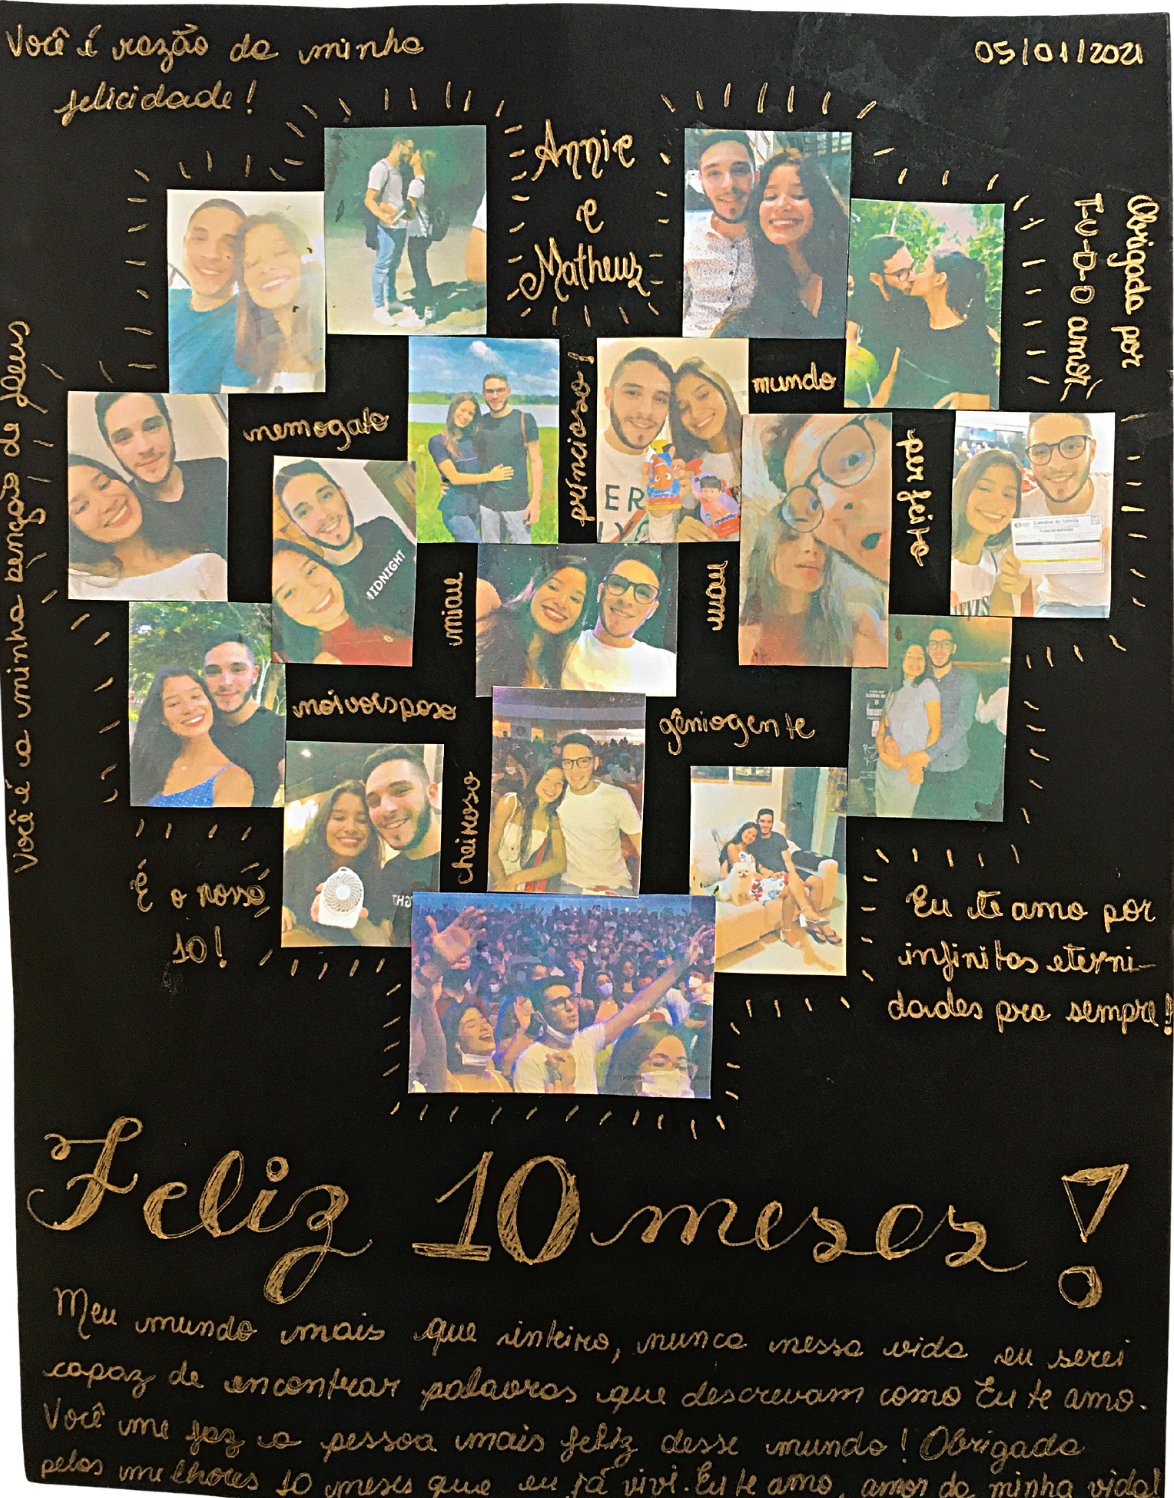 Você é razão da minha
felicidade!
05/01/2021
Annie
e
Matheus
Obrigada por
T-U-D-O amor
Você é a minha benção de Deus
nemogato
príncioso!
mundo
perfeito
miau
mau
noivorsposo
gêniogente
cheiroso
MIDNIGHT
ER
É o nosso
10!
Eu te amo por
infinitas eterni-
dades pra sempre!
Feliz 10 meses!
Meu mundo mais que inteiro, nunca nessa vida eu serei
capaz de encontrar palavras que descrevam como Eu te amo.
Você me faz a pessoa mais feliz desse mundo! Obrigada
pelos melhores 10 meses que eu já vivi. Eu te amo, amor da minha vida!